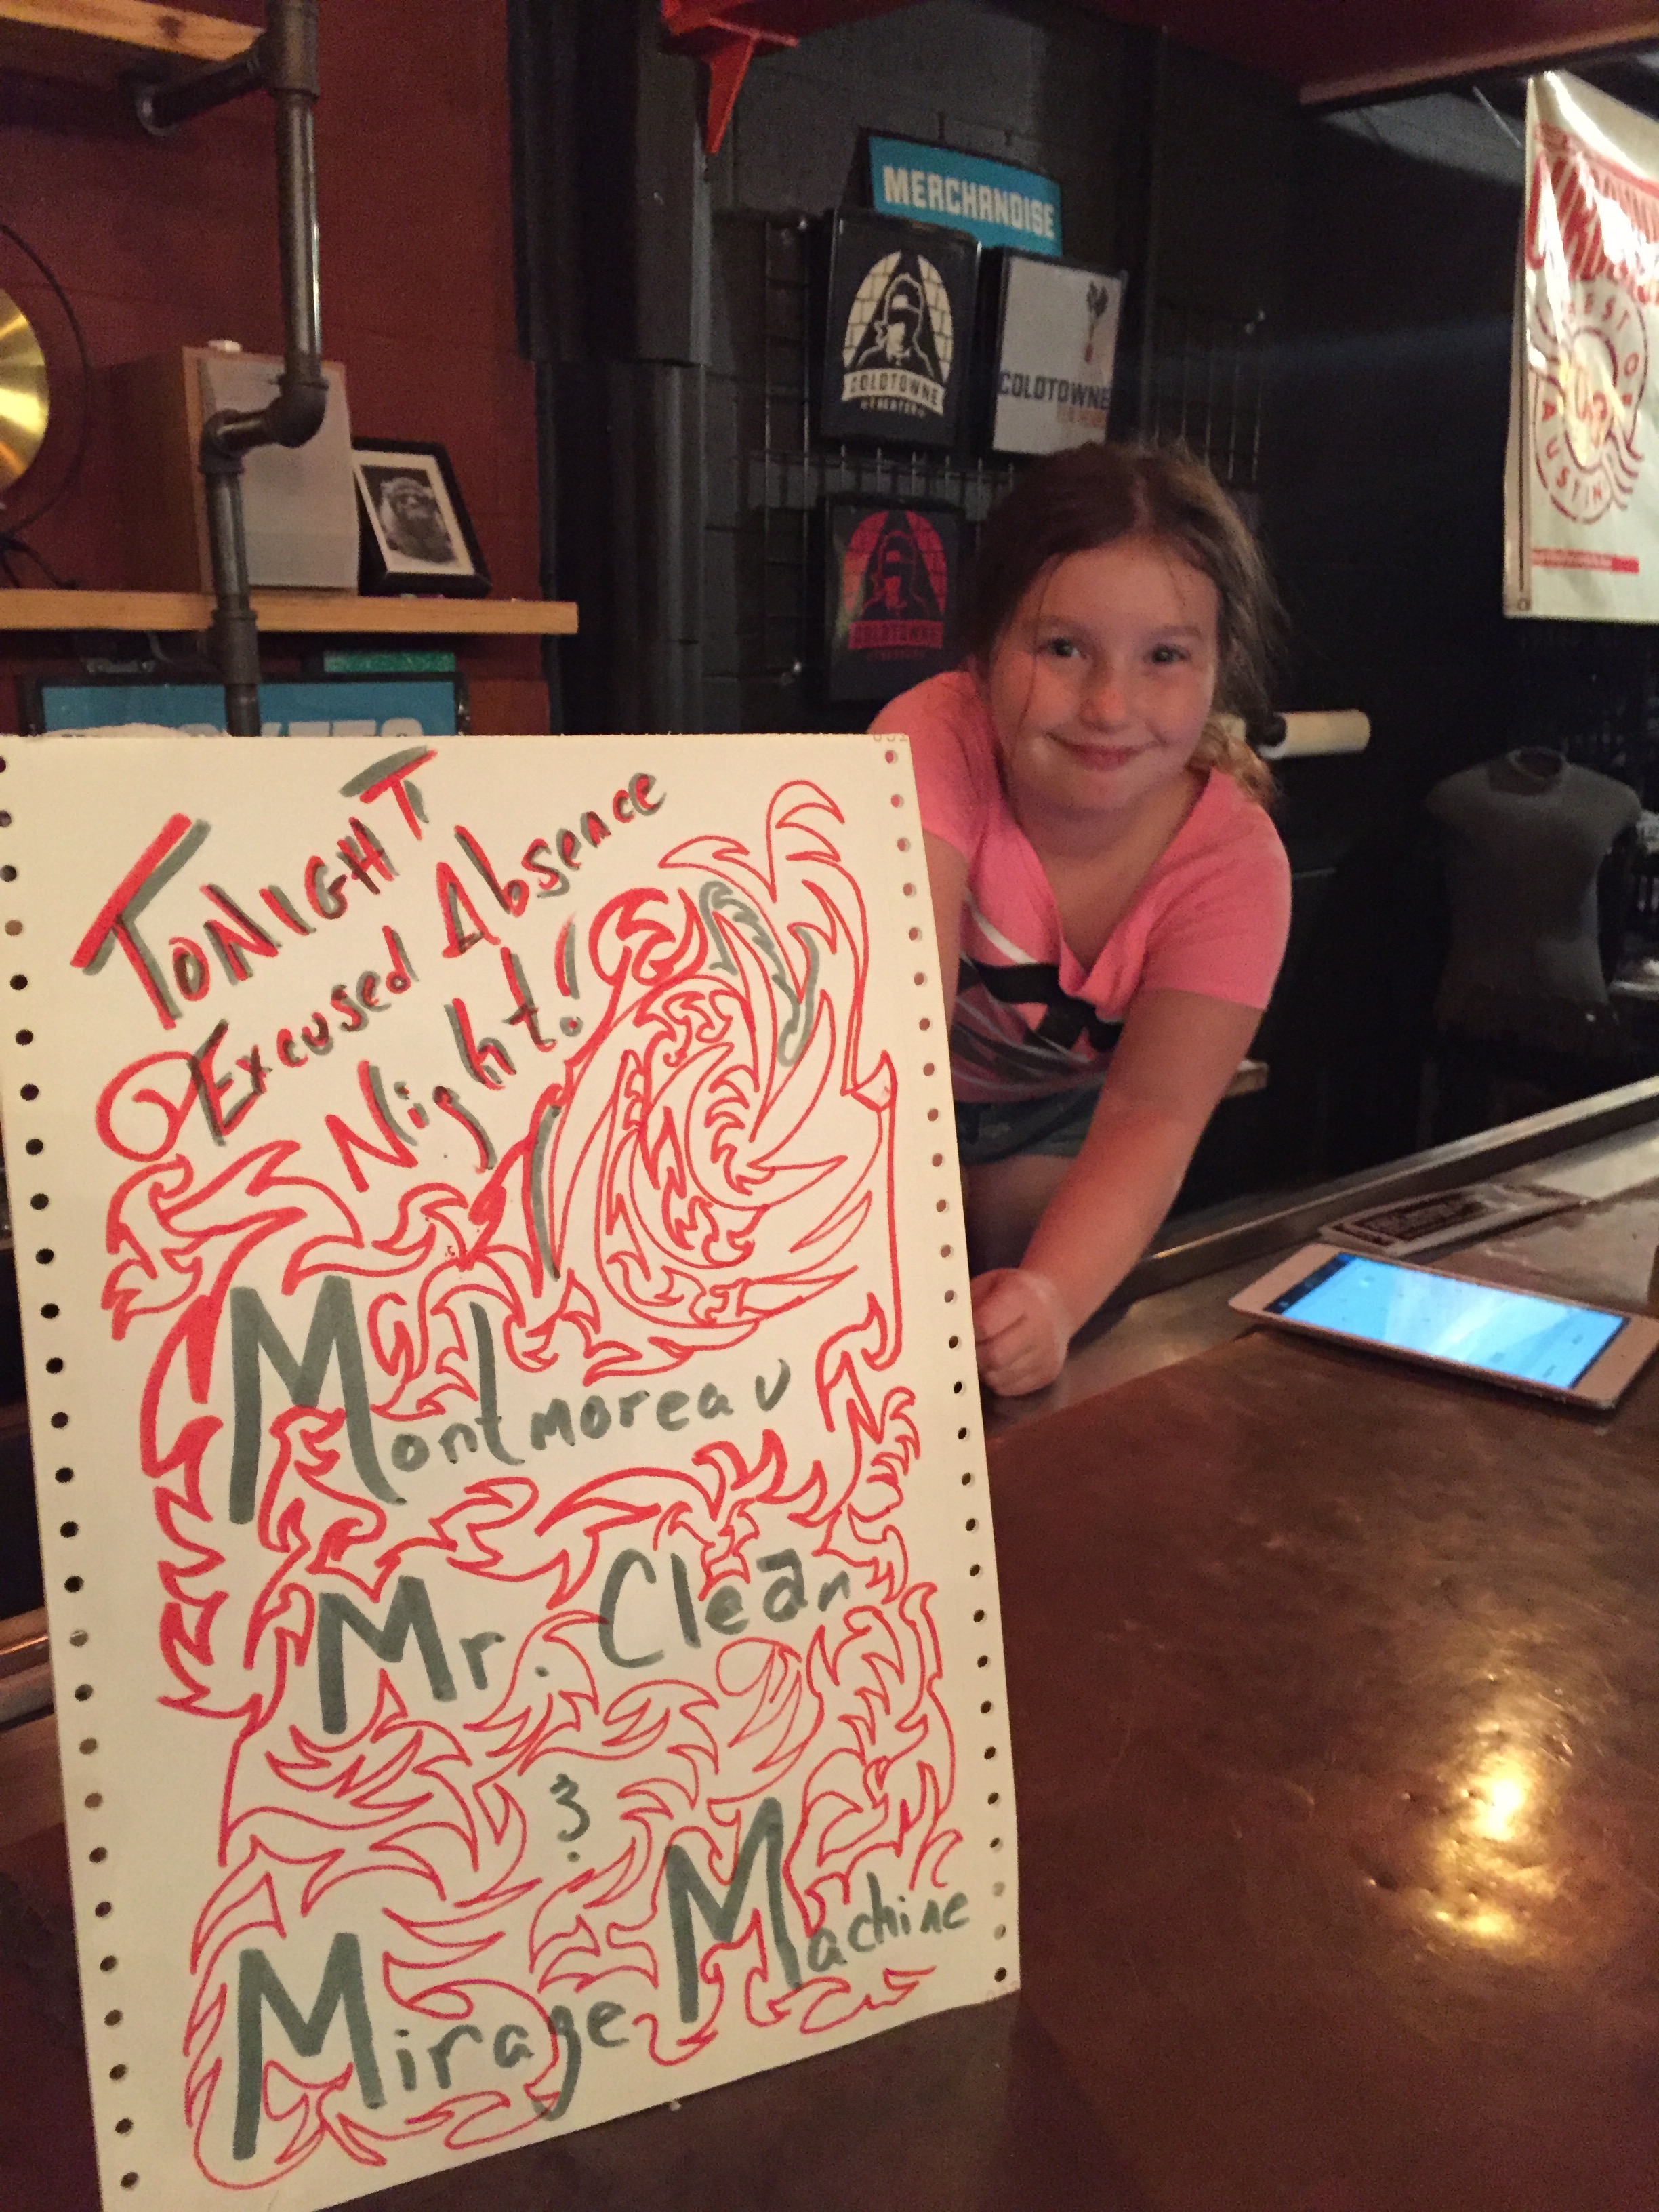 MERCHANDISE
COLDTOWNE
THEATER
COLDTOWNE
COLDTOWNE
BEST OF
AUSTIN
TONIGHT
Excused Absence
Night!
Montmoreau
Mr. Clean
&
Mirage Machine